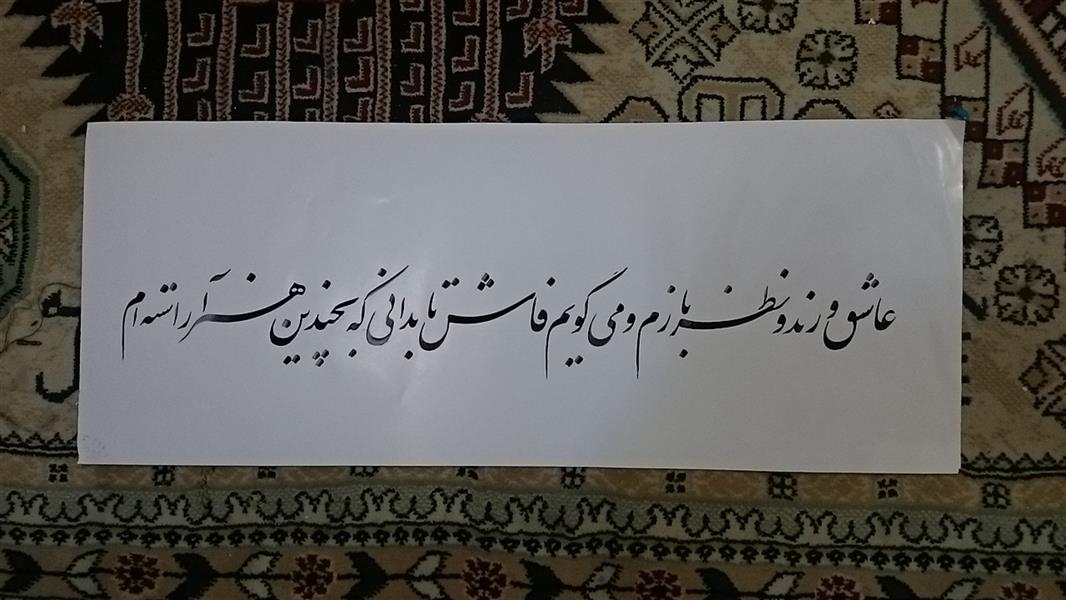 عاشق و رند و نظر بازم و می گویم فاش تا بدانی که بچندین هنر آراسته ام